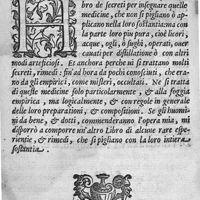 bro de secreti per insegnare quelle
medicine, che non si pigliano ò ap-
plicano nella loro sostantia: ma con
la parte loro piu pura, cioè licori,
acque, ogli, ò sughi, operati, ouer
cauati per distillatione ò con altri
modi arteficiosi. Et anchora perche mi si trattano molti
secreti, rimedi: fin' ad hora da pochi conosciuti, che era-
no da gli empirici, come misteri, occultati. Ne si tratta
di queste medicine solo particolarmente, & alla foggia
empirica, ma logicalmente, & con regole in generale
delle loro preparationi, & compositioni. Se gli huomi-
ni da bene, & dotti, commenderanno l'opera mia, mi
disporrò a comporre un'altro Libro di alcune rare espe-
rientie, & rimedi, che si pigliano con la loro intiera
sostantia.